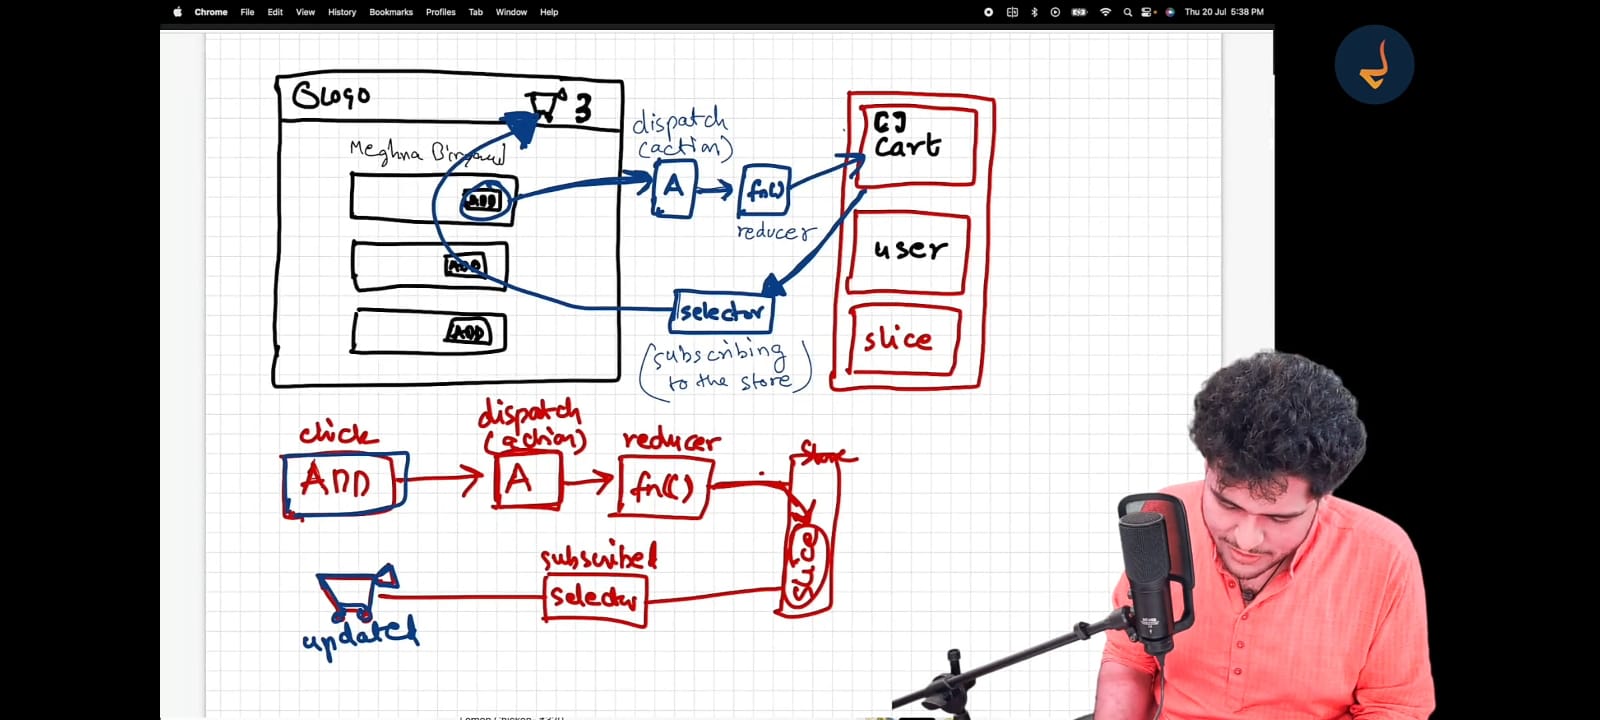 Chrome File Edit View History Bookmarks Profiles Tab Window Help
Thu 20 Jul 5:38 PM
LOGO
3
Meghna
ADD
ADD
ADD
dispatch
(action)
A
fn()
reducer
selector
(subscribing
to the store)
[]
Cart
user
slice
click
ADD
dispatch
(action)
A
reducer
fn()
Store
slice
subscribed
selector
updated